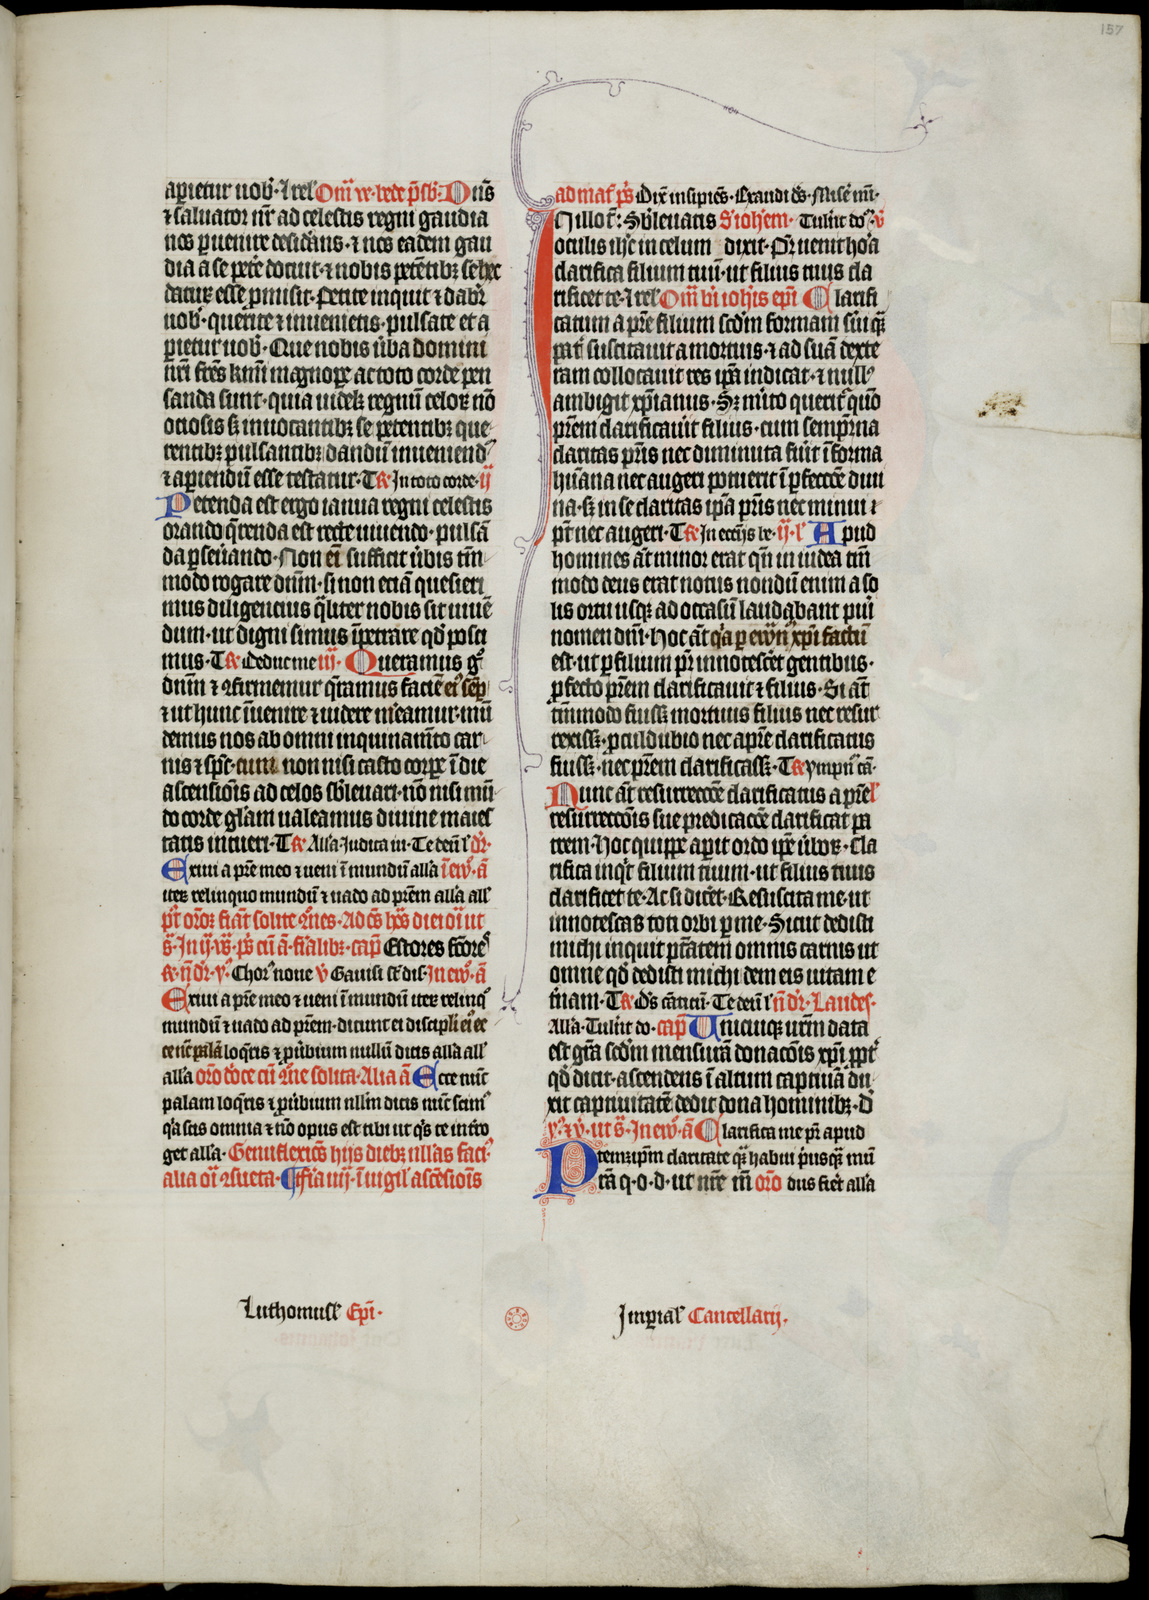 157
aperietur vob̃· ⁊ rel' Om̃ ve· bede p̃sb̃· Dñs
⁊ saluator nr̃ ad celestis regni gaudia
nos ꝑuenire desiderans· ⁊ nos eadem gau
dia a se petere docuit· ⁊ nobis petentibꝫ se hec
daturꝫ esse ꝓmisit· Petite inquit ⁊ dabit̃
uob̃· querite ⁊ inuenietis· pulsate et a
perietur uob̃· Que nobis ũba domini
nr̃i fr̃es kmi magnope ac toto corde pen
sanda sunt· quia uidelꝫ regnũ celoꝝ nõ
ociosis sꝫ inuocantibꝫ se petentibꝫ que
rentibꝫ pulsantibꝫ dandũ inueniend̃
⁊ aperiendũ esse testatur· T R̃ In toto corde· ij
Petenda est ergo ianua regni celestis
orando q̃renda est recte uiuendo· pulsã
da ꝑseuerando· Non eĩ sufficit ũbis tm̃
modo rogare dñm· si non eciã quesieri
mus diligencius q̃liter nobis sit uiuẽ
dum· ut digni simus ĩpetrare qd̃ posci
mus· T R̃ Deduc me iij· Queramus g̃
dñm ⁊ ꝯfirmemur q̃ramus faciẽ eiꝰ sẽp
⁊ ut hunc ĩuenire ⁊ uidere m̃eamur· mũ
demus nos ab omni inquinam̃to car
nis ⁊ sp̃c· cum non nisi casto corpe ĩ die
ascensiõis ad celos sb̃leuari· nõ nisi mũ
do corde gl̃am ualeamus diuine maies
tatis intueri· T R̃ Alla· Iudica in· Te deũ l' dr̃·
Exiui a pr̃e meo ⁊ ueni ĩ mundũ alla ĩ ew̃· ã
iterꝫ relinquo mundũ ⁊ uado ad pr̃em alla all'
pt̃ or̃oꝫ fiãt solite om̃es· Ad c̃s hr̃s diei oĩ ut
s̃· In ij· vs̃· ps̃ cũ ã· fr̃ialibꝫ· cap̃ Estores fc̃ores
R̃· ñ dr̃· ỹ· Chorꝰ noue v̇ Gauisi st̃ dis̃· In ew̃· ã
Exiui a pr̃e meo ⁊ ueni ĩ mundũ iterꝫ relinq̃
mundũ ⁊ uado ad pr̃em· dicunt ei discipli eiꝰ ec
ce nũc palã loq̃ris ⁊ ꝓũbium nullũ dicis alla all'
alla or̃o d̃ce cũ om̃e solita· Alia ã Ecce nũc
palam loq̃ris ⁊ ꝓũbium nll̃m dicis nũc scimꝰ
q̃a scis omnia ⁊ nõ opus est tibi ut q̃s te int̃ro
get alla· Genuflexiões hijs diebꝫ nllãs faciꝰ
alia oĩ ꝯsueta· ¶ Fr̃ia iiij· ĩ vigil' ascẽsiõis
ad mat̃ ps̃ Dix̃ insipiẽs· Exaudi ds̃· Mise m̃·
In illo t̃: Sb̃leuatis S' ioh̃em· Tulit d̃o v̇
oculis ih̃c in celum dixit· Pr̃ uenit ho'a
clarifica filium tuũ· ut filius tuus cla
rificet te· ⁊ rel' Om̃ bt̃i ioh̃is ep̃i Clarifi
catum a pr̃e filium scd̃m formam s̃ui q̃
pat̃ suscitauit a mortuis· ⁊ ad suã dexte
ram collocauit res ip̃a indicat· ⁊ nullꝰ
ambigit xp̃ianus· Sꝫ m̃ito querit̃ quõ
pr̃em clarificauit filius· cum semp̃na
claritas pr̃is nec diminuta fũit ĩ forma
hũana nec augeri potuerit ĩ ꝑfeccõe diui
na· sꝫ in se claritas ip̃a pr̃is nec minui ⁊
pt̃ nec augeri· T R̃ In eccñs be· ij· l' Apud
homines ãt minor erat qñ in iudea tm̃
modo deus erat notus nondũ enim a so
lis ortu usqꝫ ad occasũ laudabant pũi
nomen dñi· Hoc ãt q̃a p̃ ewñ xp̃i factũ
est· ut ꝑ filium pr̃ innotescẽt gentibus·
ꝓfecto pr̃em clarificauit ⁊ filius· Si ãt
tm̃modo fuissꝫ mortuus filius nec resur
rexissꝫ· ꝓculdubio nec a pr̃e clarificatus
fuissꝫ· nec pr̃em clarificassꝫ· T R̃ ympñ cã·
Nunc ãt resurreccõe clarificatus a pr̃e l'
resurreccõis sue predicacõe clarificat pa
trem· Hoc quippe aperit ordo ip̃e ũboꝝ· Cla
rifica inq̃t filium tuum· ut filius tuus
clarificet te· Ac si dicẽt· Resuscita me· ut
innotescas toti orbi ꝑ me· Sicut dedisti
michi inquit ptãtem omnis carnis ut
omne qd̃ dedisti michi dem eis uitam e
t̃nam· T R̃ Ds̃ cãticũ· Te deũ l' ñ dr̃· Laudes·
Alla· Tulit do· cap̃ Vnicuiqꝫ urm̃ data
est gr̃a scd̃m mensurã donacõis xp̃i ppt̃
qd̃ dicit· ascendens ĩ altum captiuã du
xit captiuitatẽ dedit dona hominibꝫ· D̃
ỹ· ⁊ v̇· ut s̃· In ew̃· ã Clarifica me pr̃ apud
temetip̃m claritate q̃ habui p̃usq̃ mũ
Pr̃a q· o· d· ut nt̃e m̃ or̃o dus fiẽt alla
Luthomusl̃ Ep̃i·
Imꝑial' Cancellarij·